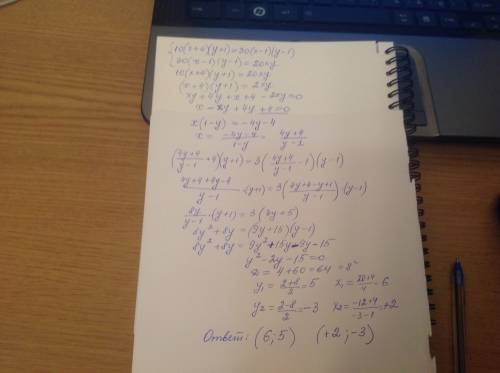 {10(x+4)(y+1)=30(x-1)(y-1)
{30(x-1)(y-1)=20xy
10(x+4)(y+1)=20xy
(x+4)(y+1)=2xy
xy+4y+x+4-2xy=0
x-xy+4y+4=0
x(1-y)=-4y-4
x = (-4y-4)/(1-y) = (4y+4)/(y-1)
((4y+4)/(y-1)+4)(y+1)=3((4y+4)/(y-1)-1)(y-1)
(4y+4+4y-4)/(y-1)·(y+1)=3((4y+4-y+1)/(y-1))·(y-1)
8y/(y-1)·(y+1)=3(3y+5)
8y²+8y=(9y+15)(y-1)
8y²+8y=9y²+15y-9y-15
y²-2y-15=0
D=4+60=64=8²
y₁=(2+8)/2=5 x₁=(20+4)/4=6
y₂=(2-8)/2=-3 x₂=(-12+4)/(-3-1)=+2
Ответ: (6;5) (+2;-3)